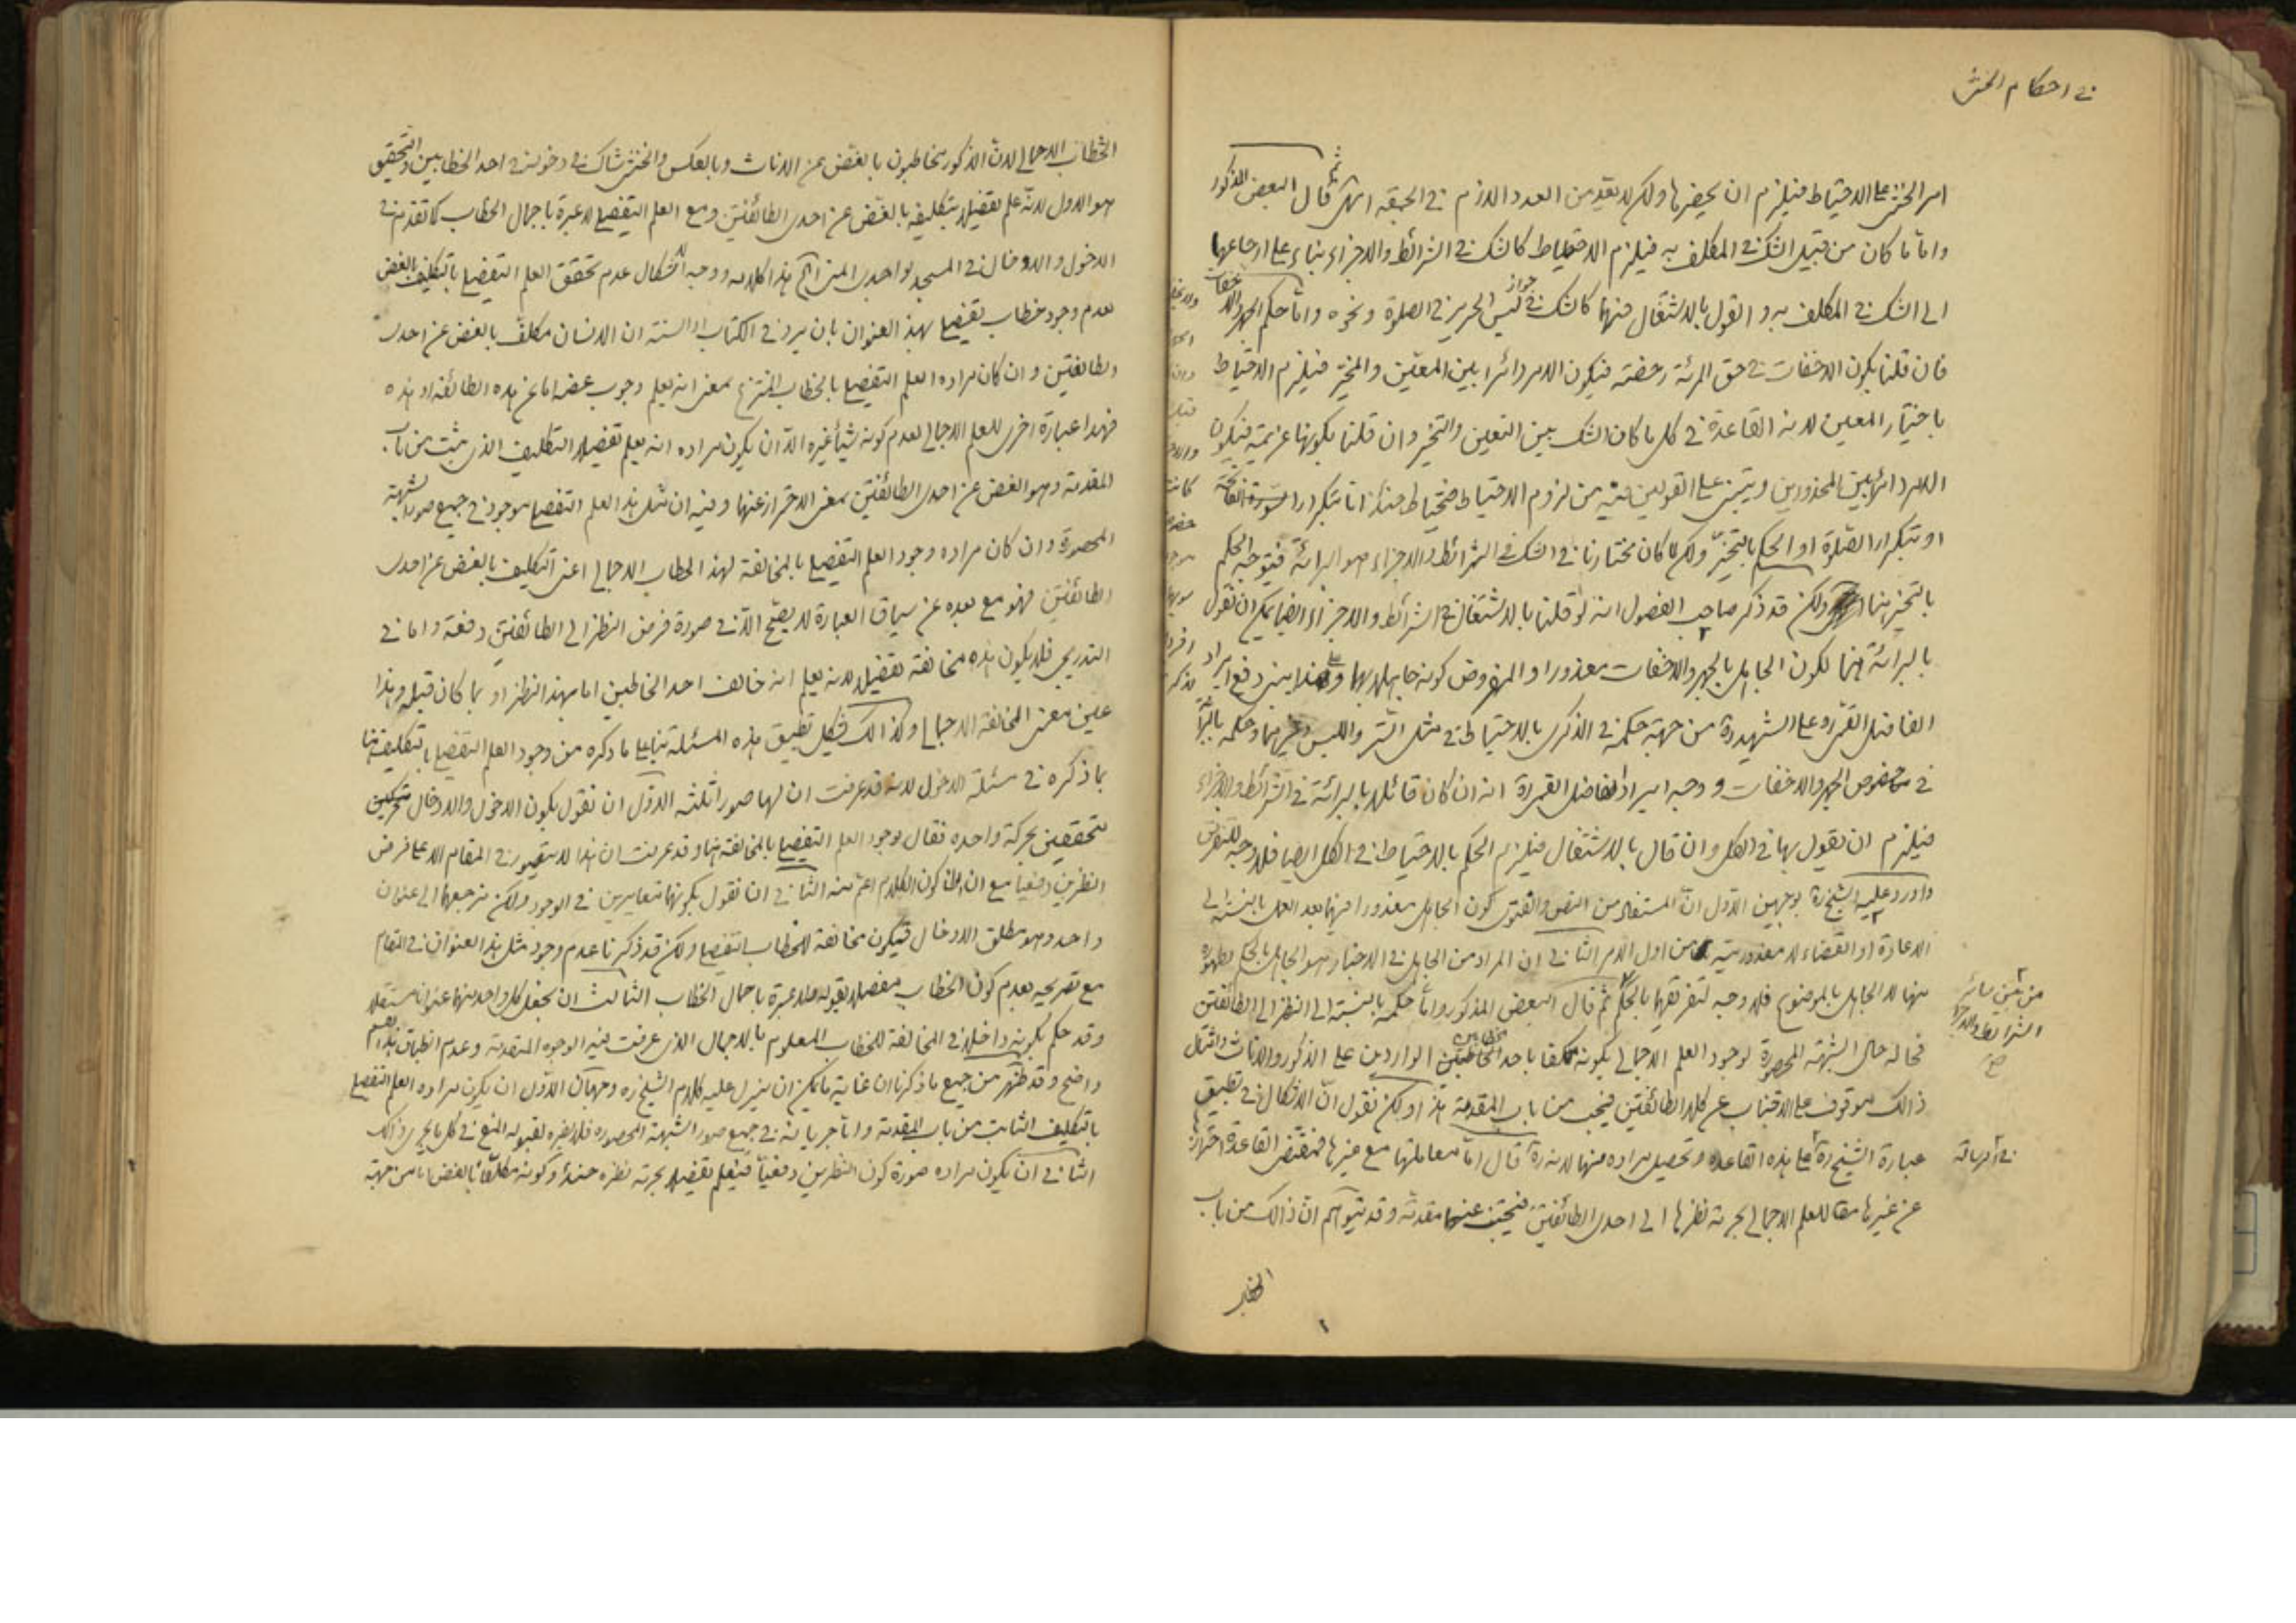 في احكام الخنثى
امر الخنثى على الاحتياط فيلزم ان يحضرها ولكن لا يعد من العدد اللازم في الجمعة انتهى ثم قال البعض المذكور
واما ما كان من قبيل الشك في المكلف به فيلزم الاحتياط كالشك في الشرائط والاجزاء بناء على ارجاعها
الى الشك في المكلف به والقول بالاشتغال فيهما كالشك في جواز لبس الحرير في الصلوة ونحوه واما حكم الجهر والاخفات
فان قلنا بكون الاخفات في حق المرئة رخصة فيكون الامر دائرا بين المعين والمخير فيلزم الاحتياط
باختيار المعين لانه القاعدة في كل ما كان الشك بين التعيين والتخيير وان قلنا بكونها عزيمة فيكون
الامر دائرا بين المحذورين ويبتنى على القولين فيه من لزوم الاحتياط فتحتاط حينئذ اما بتكرار السورة
او بتكرار الصلوة او الحكم بالتخيير ولكن لما كان مختارنا في الشك في الشرائط والاجزاء هو البرائة فيتوجه الحكم
بالتخيير هنا ولكن قد ذكر صاحب الفصول انه لو قلنا بالاشتغال في الشرائط والاجزاء ايضا يمكن ان نقول
بالبرائة هنا لكون الجاهل بالجهر والاخفات معذورا والمفروض كونه جاهلا بهما وعلى هذا يبنى دفع ايراد
الفاضل القمي ره على الشهيد ره من جهة حكمه في الذكرى بالاحتياط في مثل الستر واللبس وغيرهما وحكمه بالبرائة
في خصوص الجهر والاخفات ووجه ايراد الفاضل القمي ره انه ان كان قائلا بالبرائة في الشرائط والاجزاء
فيلزم ان يقول بها في الكل وان قال بالاشتغال فيلزم الحكم بالاحتياط في الكل ايضا فلا وجه للتفرقة
واورد عليه الشيخ ره بوجهين الاول ان المستفاد من النص والفتوى كون الجاهل معذورا فيهما بعد العمل بالنسبة الى
الاعادة او القضاء لا معذوريته من اول الامر الثاني ان المراد من الجاهل في الاخبار هو الجاهل بالحكم
منها لا الجاهل بالموضوع فلا وجه لتفريقهما بالحكم ثم قال البعض المذكور واما حكمه بالنسبة الى النظر الى الطائفتين
فحاله حال الشبهة المحصورة لوجود العلم الاجمالي بكونه مكلفا باحد الخطابين الواردين على الذكور والاناث وامتثال
ذالك موقوف على الاجتناب عن كلا الطائفتين فيجب من باب المقدمة هذا ولكن نقول ان الاشكال في تطبيق
عبارة الشيخ ره على هذه القاعدة وتحصيل مراده منها لانه ره قال اما معاملتها مع غيرها فمقتضى القاعدة احترازها
عن غيرها مقا للعلم الاجمالي بحرمة نظرها الى احدى الطائفتين فتجتنب عنهما مقدمة وقد يتوهم ان ذالك من باب
من بين سائر
الشرائط والاجزاء
صح
الخطاب
الخطاب الاجمالي لان الذكور مخاطبون بالغض عن الاناث وبالعكس والخنثى شاك في دخوله في احد الخطابين والتحقيق
هو الاول لانه علم تفصيلا بتكليفه بالغض عن احدى الطائفتين ومع العلم التفصيلي لا عبرة باجمال الخطاب كما تقدم في
الدخول والادخال في المسجد لواجدى المني انتهى هذا كلامه ووجه الاشكال عدم تحقق العلم التفصيلي بالتكليف بالغض
لعدم وجود خطاب تفصيلي بهذا العنوان بان يرد في الكتاب او السنة ان الانسان مكلف بالغض عن احدى
الطائفتين وان كان مراده العلم التفصيلي بالخطاب المنتزع بمعنى انه يعلم وجوب غضه اما عن هذه الطائفة او هذه
فهذا عبارة اخرى للعلم الاجمالي لعدم كونه شيئا غيره الا ان يكون مراده انه يعلم تفصيلا التكليف الذي يثبت من باب
المقدمة وهو الغض عن احدى الطائفتين بمعنى الاحتراز عنها وفيه ان مثل هذا العلم التفصيلي موجود في جميع صور الشبهة
المحصورة وان كان مراده وجود العلم التفصيلي بالمخالفة لهذا الخطاب الاجمالي اعنى التكليف بالغض عن احدى
الطائفتين فهو مع بعده عن سياق العبارة لا يصح الا في صورة فرض النظر الى الطائفتين دفعة واما في
التدريجي فلا يكون هذه مخالفة تفصيلا لانه يعلم انه خالف احد الخطابين اما بهذا النظر او بما كان قبله وهذا
عين معنى المخالفة الاجمالي وكذالك يشكل تطبيق هذه المسئلة بناء على ما ذكره من وجود العلم التفصيلي بالتكليف هنا
بما ذكره في مسئلة الدخول لانه قد عرفت ان لها صورا ثلثة الاول ان نقول بكون الدخول والادخال
متحققين بحركة واحدة فقال بوجود العلم التفصيلي بالمخالفة هنا وقد عرفت ان هذا لا يتصور في المقام الا على فرض
النظرين دفعيا مع ان كون الكلام اعم منه الثاني ان نقول بكونهما متغايرين في الوجود ولكن نرجعهما الى عنوان
واحد وهو مطلق الادخال فيكون مخالفة للخطاب التفصيلي ولكن قد ذكرنا عدم وجود مثل هذا العنوان في المقام
مع تصريحه بعدم كون الخطاب مفصلا بقوله فلا عبرة باجمال الخطاب الثالث ان نجعل كل واحد منهما عنوانا مستقلا
وقد حكم بكونه داخلا في المخالفة للخطاب المعلوم بالاجمال الذي عرفت فيه الوجوه المتقدمة وعدم انطباق
واضح وقد ظهر من جميع ما ذكرنا ان غاية ما يمكن ان ينزل عليه كلام الشيخ ره وجهان الاول ان يكون مراده العلم التفصيلي
بالتكليف الثابت من باب المقدمة واما جريانه في جميع صور الشبهة المحصورة فلا يضره لقبوله المنع في كل ما يجرى ذالك
الثاني ان يكون مراده صورة كون النظرين دفعيا فيعلم تفصيلا بحرمة نظره حينئذ وكونه مكلفا بالغض اما من جهة